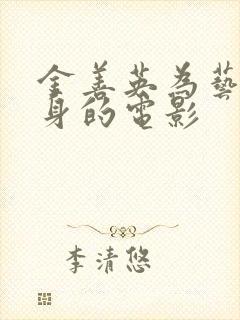 金善英為藝
身的電影
李清悠